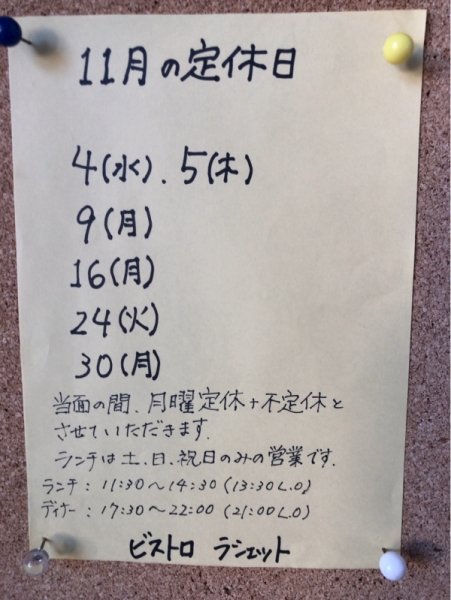 11月の定休日
4(水)、5(木)
9(月)
16(月)
24(火)
30(月)
当面の間、月曜定休+不定休と
させていただきます。
ランチは土、日、祝日のみの営業です。
ランチ:11:30〜14:30(13:30L.O)
ディナー:17:30〜22:00(21:00L.O)
ビストロ ラシェット